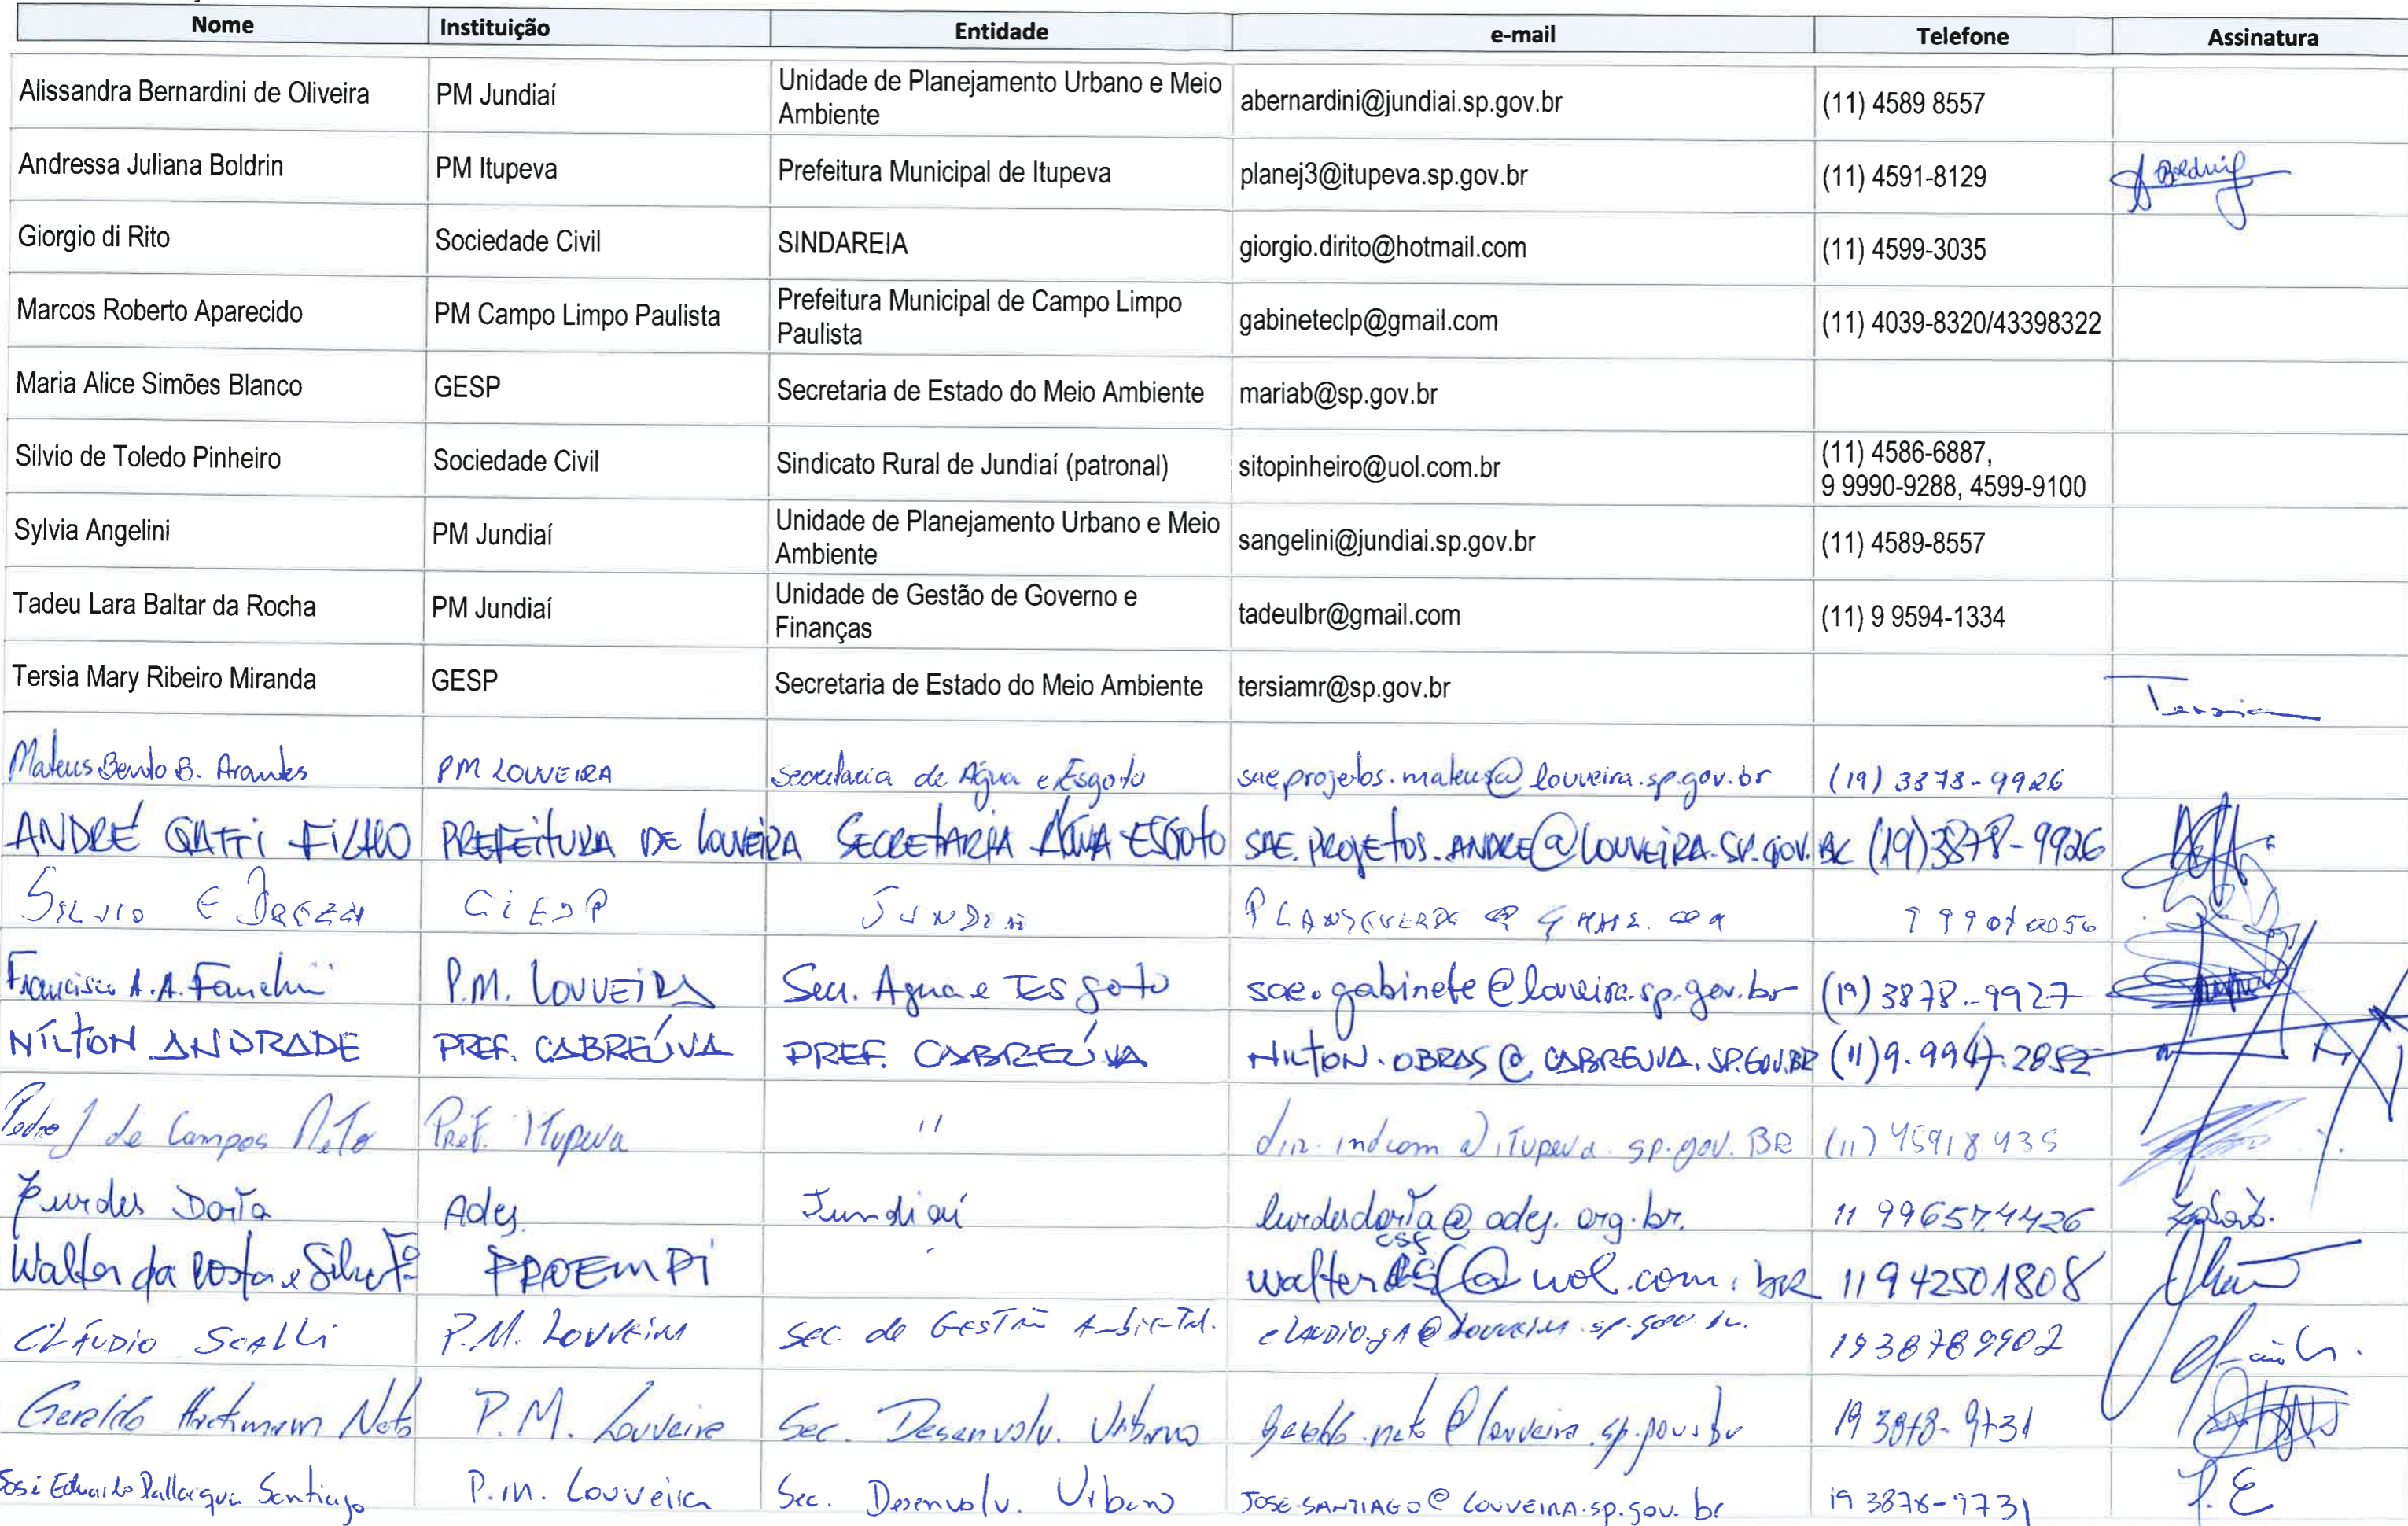 Nome Instituição Entidade e-mail Telefone Assinatura
Alissandra Bernardini de Oliveira PM Jundiaí Unidade de Planejamento Urbano e Meio Ambiente abernardini@jundiai.sp.gov.br (11) 4589 8557
Andressa Juliana Boldrin PM Itupeva Prefeitura Municipal de Itupeva planej3@itupeva.sp.gov.br (11) 4591-8129
Giorgio di Rito Sociedade Civil SINDAREIA giorgio.dirito@hotmail.com (11) 4599-3035
Marcos Roberto Aparecido PM Campo Limpo Paulista Prefeitura Municipal de Campo Limpo Paulista gabineteclp@gmail.com (11) 4039-8320/43398322
Maria Alice Simões Blanco GESP Secretaria de Estado do Meio Ambiente mariab@sp.gov.br
Silvio de Toledo Pinheiro Sociedade Civil Sindicato Rural de Jundiaí (patronal) sitopinheiro@uol.com.br (11) 4586-6887, 9 9990-9288, 4599-9100
Sylvia Angelini PM Jundiaí Unidade de Planejamento Urbano e Meio Ambiente sangelini@jundiai.sp.gov.br (11) 4589-8557
Tadeu Lara Baltar da Rocha PM Jundiaí Unidade de Gestão de Governo e Finanças tadeulbr@gmail.com (11) 9 9594-1334
Tersia Mary Ribeiro Miranda GESP Secretaria de Estado do Meio Ambiente tersiamr@sp.gov.br Tersia
Mateus Bento B. Arantes PM LOUVEIRA Secretaria de Água e Esgoto saeprojetos.mateus@louveira.sp.gov.br (19) 3878-9926
ANDRÉ GATTI FILHO PREFEITURA DE LOUVEIRA SECRETARIA ÁGUA ESGOTO SAE.PROJETOS.ANDRE@LOUVEIRA.SP.GOV.BR (19)3878-9926
SILVIO E CIESP JUNDIAI
Francisco A.A. P.M. LOUVEIRA Sec. Agua e Esgoto sae.gabinete@louveira.sp.gov.br (19) 3878-9927
NILTON ANDRADE PREF. CABREÚVA PREF. CABREÚVA NILTON.OBRAS@CABREUVA.SP.GOV.BR
Pedro J de Campos Neto Pref. Itupeva 11 dir.indcom@itupeva.sp.gov.BR (11) 45918435
Lurdes Doria Adej. Jundiaí lurdesdoria@adej.org.br. 11 99657.4426
Walter da Costa e Silva Fo PROEMPI waltercsf@uol.com.br 11942501808
CLÁUDIO SCALLI P.M. LOUVEIRA Sec. de GESTÃO Ambiental. CLAUDIO.gA@Louveira.sp.gov.br. 1938789902
Geraldo Neto P.M. Louveira Sec. Desenvolv. Urbano geraldo.neto@louveira.sp.gov.br 19 3878-9731
José Eduardo Santiago P.M. Louveira Sec. Desenvolv. Urbano JOSE.SANTIAGO@LOUVEIRA.sp.gov.br 19 3878-9731 J.E